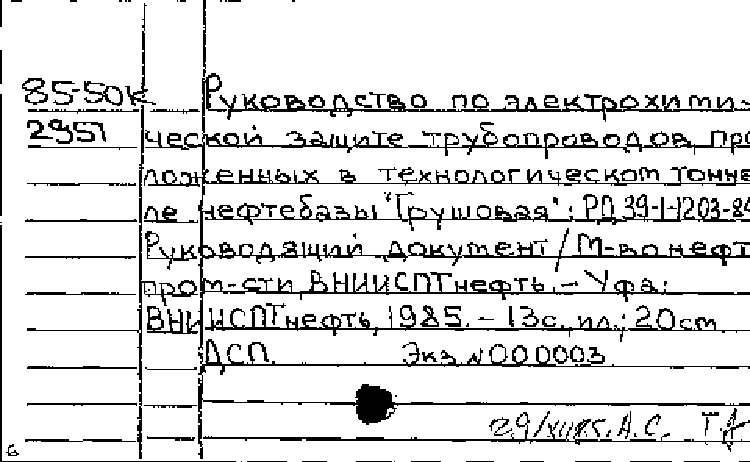 85-50к Руководство по электрохими-
2951 ческой защите трубопроводов, про
ложенных в технологическом тонне
ле нефтебазы "Грушовая": РД 39-1-1203-84
Руководящий документ / М-во нефт
пром-сти, ВНИИСПТнефть. - Уфа:
ВНИИСПТнефть, 1985. - 13с., ил.; 20см
ДСП. Экз. N000003
А.С.
6